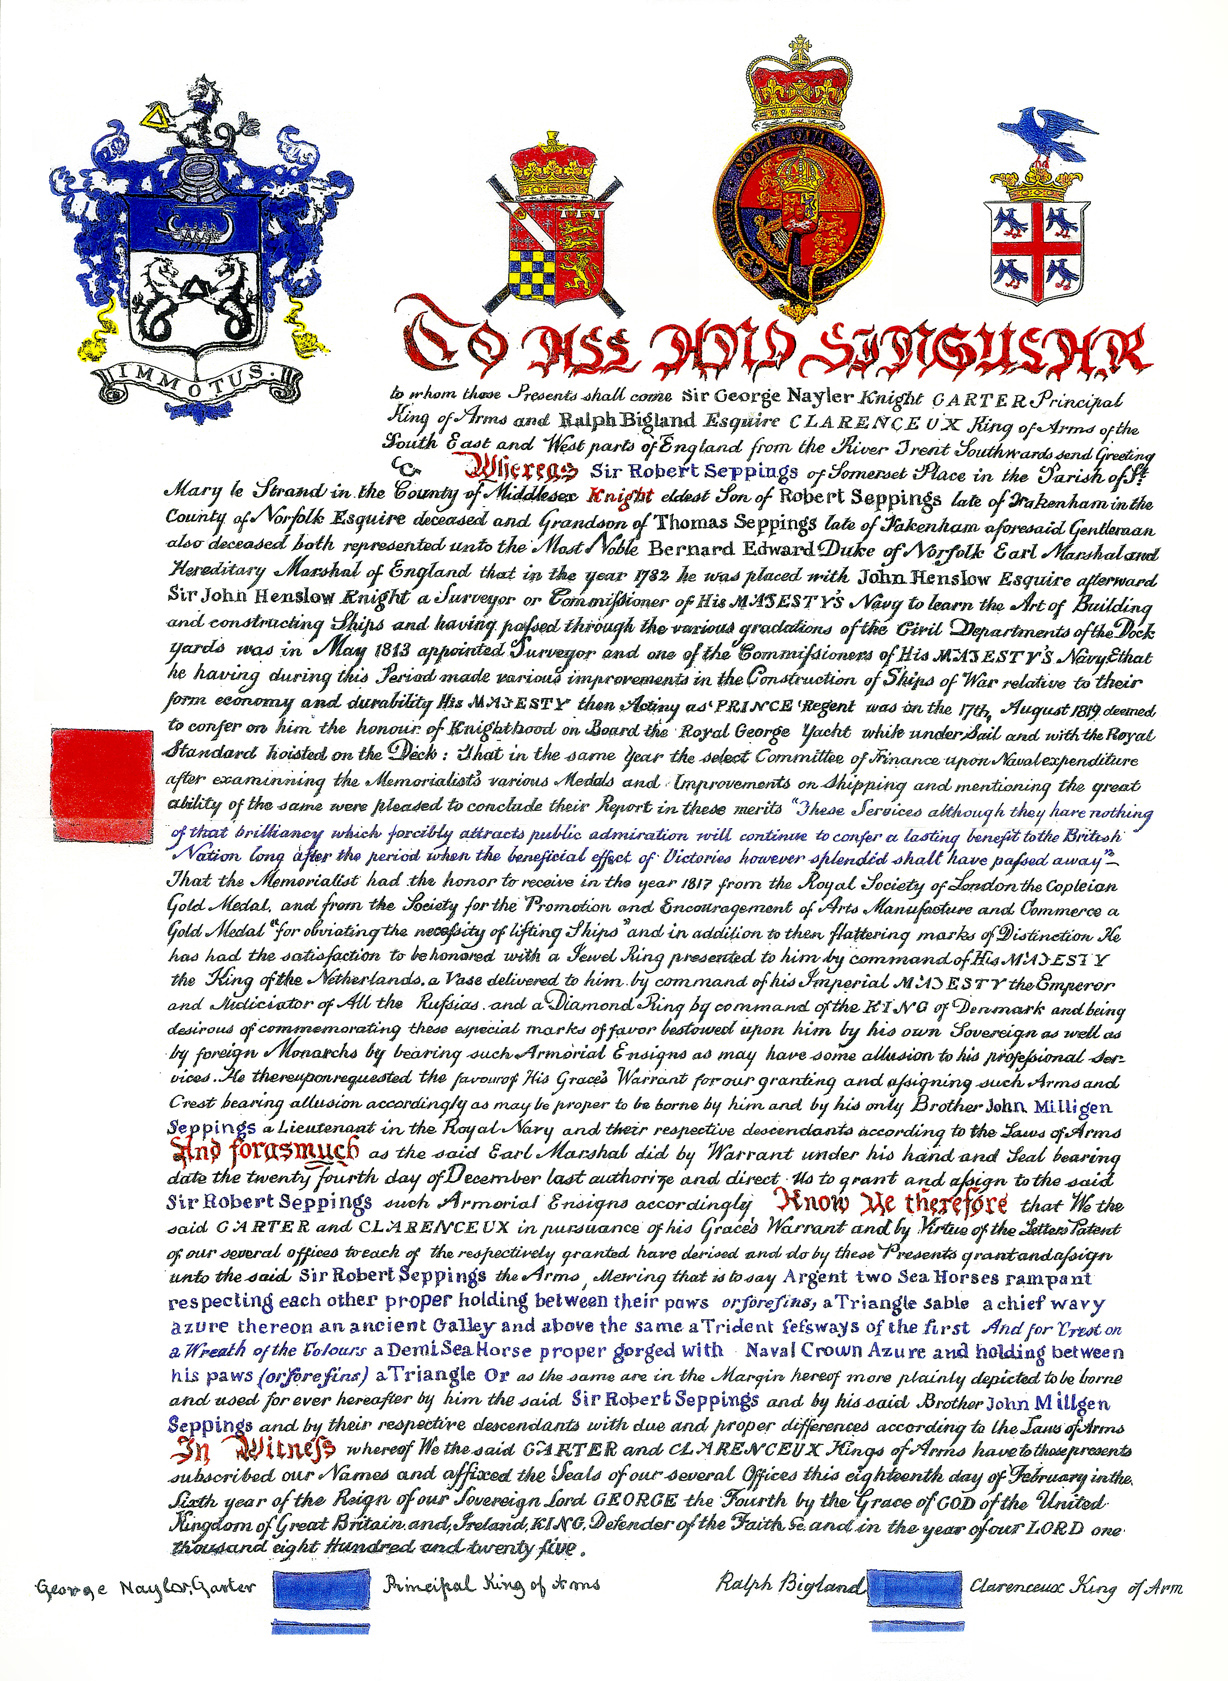 IMMOTUS.
HONI SOIT QUI MAL Y PENSE
TO ALL AND SINGULAR
to whom those Presents shall come Sir George Nayler Knight GARTER Principal
King of Arms and Ralph Bigland Esquire CLARENCEUX King of Arms of the
South East and West parts of England from the River Trent Southwards send Greeting
Whereas Sir Robert Seppings of Somerset Place in the Parish of St
Mary le Strand in the County of Middlesex Knight eldest Son of Robert Seppings late of Fakenham in the
County of Norfolk Esquire deceased and Grandson of Thomas Seppings late of Fakenham aforesaid Gentleman
also deceased both represented unto the Most Noble Bernard Edward Duke of Norfolk Earl Marshal and
Hereditary Marshal of England that in the year 1782 he was placed with John Henslow Esquire afterward
Sir John Henslow Knight a Surveyor or Commissioner of His MAJESTY'S Navy to learn the Art of Building
and constructing Ships and having passed through the various gradations of the Civil Departments of the Dock
yards was in May 1813 appointed Surveyor and one of the Commissioners of His MAJESTY'S Navy & that
he having during this Period made various improvements in the Construction of Ships of War relative to their
form economy and durability His MAJESTY then Acting as PRINCE Regent was on the 17th, August 1819 deemed
to confer on him the honour of Knighthood on Board the Royal George Yacht while under Sail and with the Royal
Standard hoisted on the Deck: That in the same Year the select Committee of Finance upon Naval expenditure
after examinning the Memorialist's various Medals and Improvements on Shipping and mentioning the great
ability of the same were pleased to conclude their Report in these merits "These Services although they have nothing
of that brilliancy which forcibly attracts public admiration will continue to confer a lasting benefit to the British
Nation long after the period when the beneficial effect of Victories however splendid shall have passed away"-
That the Memorialist had the honor to receive in the year 1817 from the Royal Society of London the Copleian
Gold Medal, and from the Society for the Promotion and Encouragement of Arts Manufacture and Commerce a
Gold Medal "for obviating the necessity of lifting Ships" and in addition to then flattering marks of Distinction He
has had the satisfaction to be honored with a Jewel Ring presented to him by command of His MAJESTY
the King of the Netherlands, a Vase delivered to him by command of his Imperial MAJESTY the Emperor
and Judiciator of All the Russias, and a Diamond Ring by command of the KING of Denmark and being
desirous of commemorating these especial marks of favor bestowed upon him by his own Sovereign as well as
by foreign Monarchs by bearing such Armorial Ensigns as may have some allusion to his professional Ser-
vices. He thereupon requested the favour of His Grace's Warrant for our granting and assigning such Arms and
Crest bearing allusion accordingly as may be proper to be borne by him and by his only Brother John Milligen
Seppings a Lieutenant in the Royal Navy and their respective descendants according to the Laws of Arms
And forasmuch as the said Earl Marshal did by Warrant under his hand and Seal bearing
date the twenty fourth day of December last authorize and direct Us to grant and assign to the said
Sir Robert Seppings such Armorial Ensigns accordingly Know Ye therefore that We the
said GARTER and CLARENCEUX in pursuance of his Grace's Warrant and by Virtue of the Letters Patent
of our several offices to each of the respectively granted have derised and do by these Presents grant and assign
unto the said Sir Robert Seppings the Arms, Mewing that is to say Argent two Sea Horses rampant
respecting each other proper holding between their paws or forefins, a Triangle sable a chief wavy
azure thereon an ancient Galley and above the same a Trident fefsways of the first And for Crest on
a Wreath of the Colours a Demi Sea Horse proper gorged with Naval Crown Azure and holding between
his paws (or forefins) a Triangle Or as the same are in the Margin hereof more plainly depicted to be borne
and used for ever hereafter by him the said Sir Robert Seppings and by his said Brother John Millgen
Seppings and by their respective descendants with due and proper differences according to the Laws of Arms
In Witness whereof We the said GARTER and CLARENCEUX Kings of Arms have to those presents
subscribed our Names and affixed the Seals of our several Offices this eighteenth day of February in the,
Sixth year of the Reign of our Sovereign Lord GEORGE the Fourth by the Grace of GOD of the United
Kingdom of Great Britain, and, Ireland, KING, Defender of the Faith &c. and in the year of our LORD one
thousand eight Hundred and twenty five.
George Naylor, Garter Principal King of Arms Ralph Bigland Clarenceux King of Arm